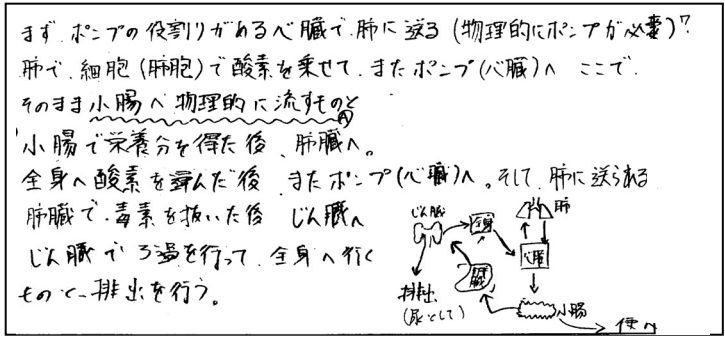 まず、ポンプの役割りがある心臓で、肺に送る(物理的にポンプが必要)?
肺で、細胞(肺胞)で酸素を乗せて、またポンプ(心臓)へ ここで、
そのまま小腸へ物理的に流すものと
A
小腸で栄養分を得た後、肝臓へ。
全身へ酸素を運んだ後、またポンプ(心臓)へ。そして、肺に送られる
肝臓で、毒素を抜いた後 じん臓へ
じん臓でろ過を行って、全身へ行く
ものと、排出を行う。
じん臓
全身
肺
心臓
肝臓
排出
(尿として)
小腸
便へ